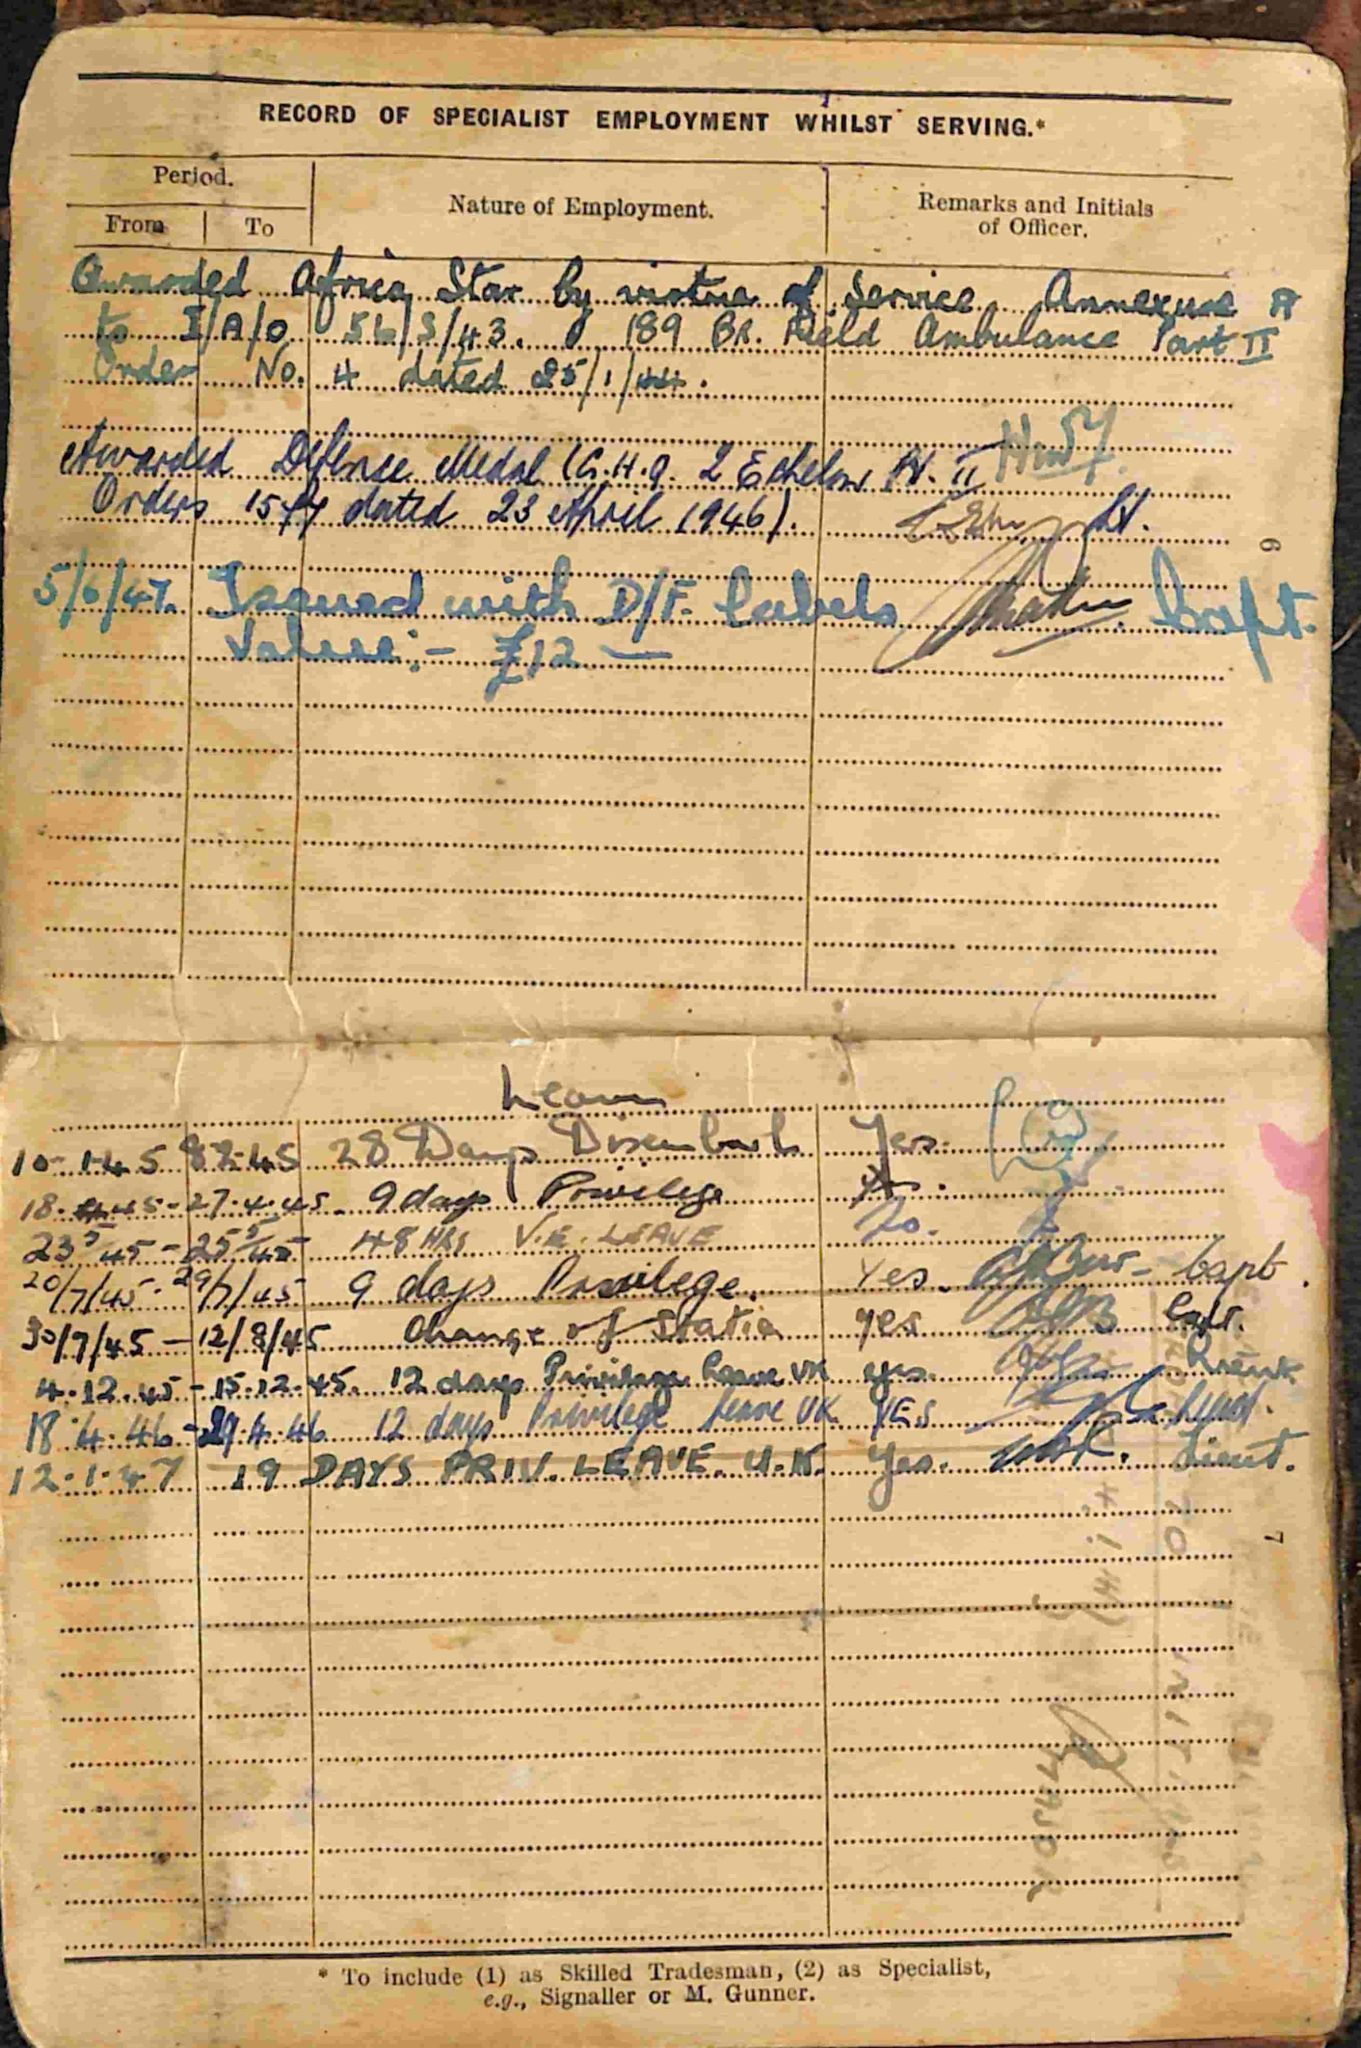 RECORD OF SPECIALIST EMPLOYMENT WHILST SERVING.*
Period.
Nature of Employment.
Remarks and Initials
of Officer.
From To
Awarded Africa Star by virtue of Service Annexure A
to I/A/O 56/S/43. 189 BR. Field Ambulance Part II
Order No. 4 dated 25/1/44.
Awarded Defence Medal (G.H.Q. 2 Echelon Pt. II
Orders dated 23 April 1946). Lt.
5/6/47. Issued with D/F. Labels Capt.
Value:- £12 —
6
10-1-45 28 Days Disembark Yes.
18. 45 - 27.4.45. 9 days Privilege
23 5/45 - 25 5/45 48 HRS V.E. LEAVE Do.
20/7/45 - 29/7/45 9 days Privilege. Yes. Capt.
30/7/45 - 12/8/45 Change of Statio yes Capt.
4.12.45 - 15.12.45. 12 days Privilege Leave UK yes. Lieut
18.4.46 - 29.4.46 12 days Privilege leave UK YES Lieut.
12.1.47 19 DAYS PRIV. LEAVE. U.K. Yes. Lieut.
7
* To include (1) as Skilled Tradesman, (2) as Specialist,
e.g., Signaller or M. Gunner.